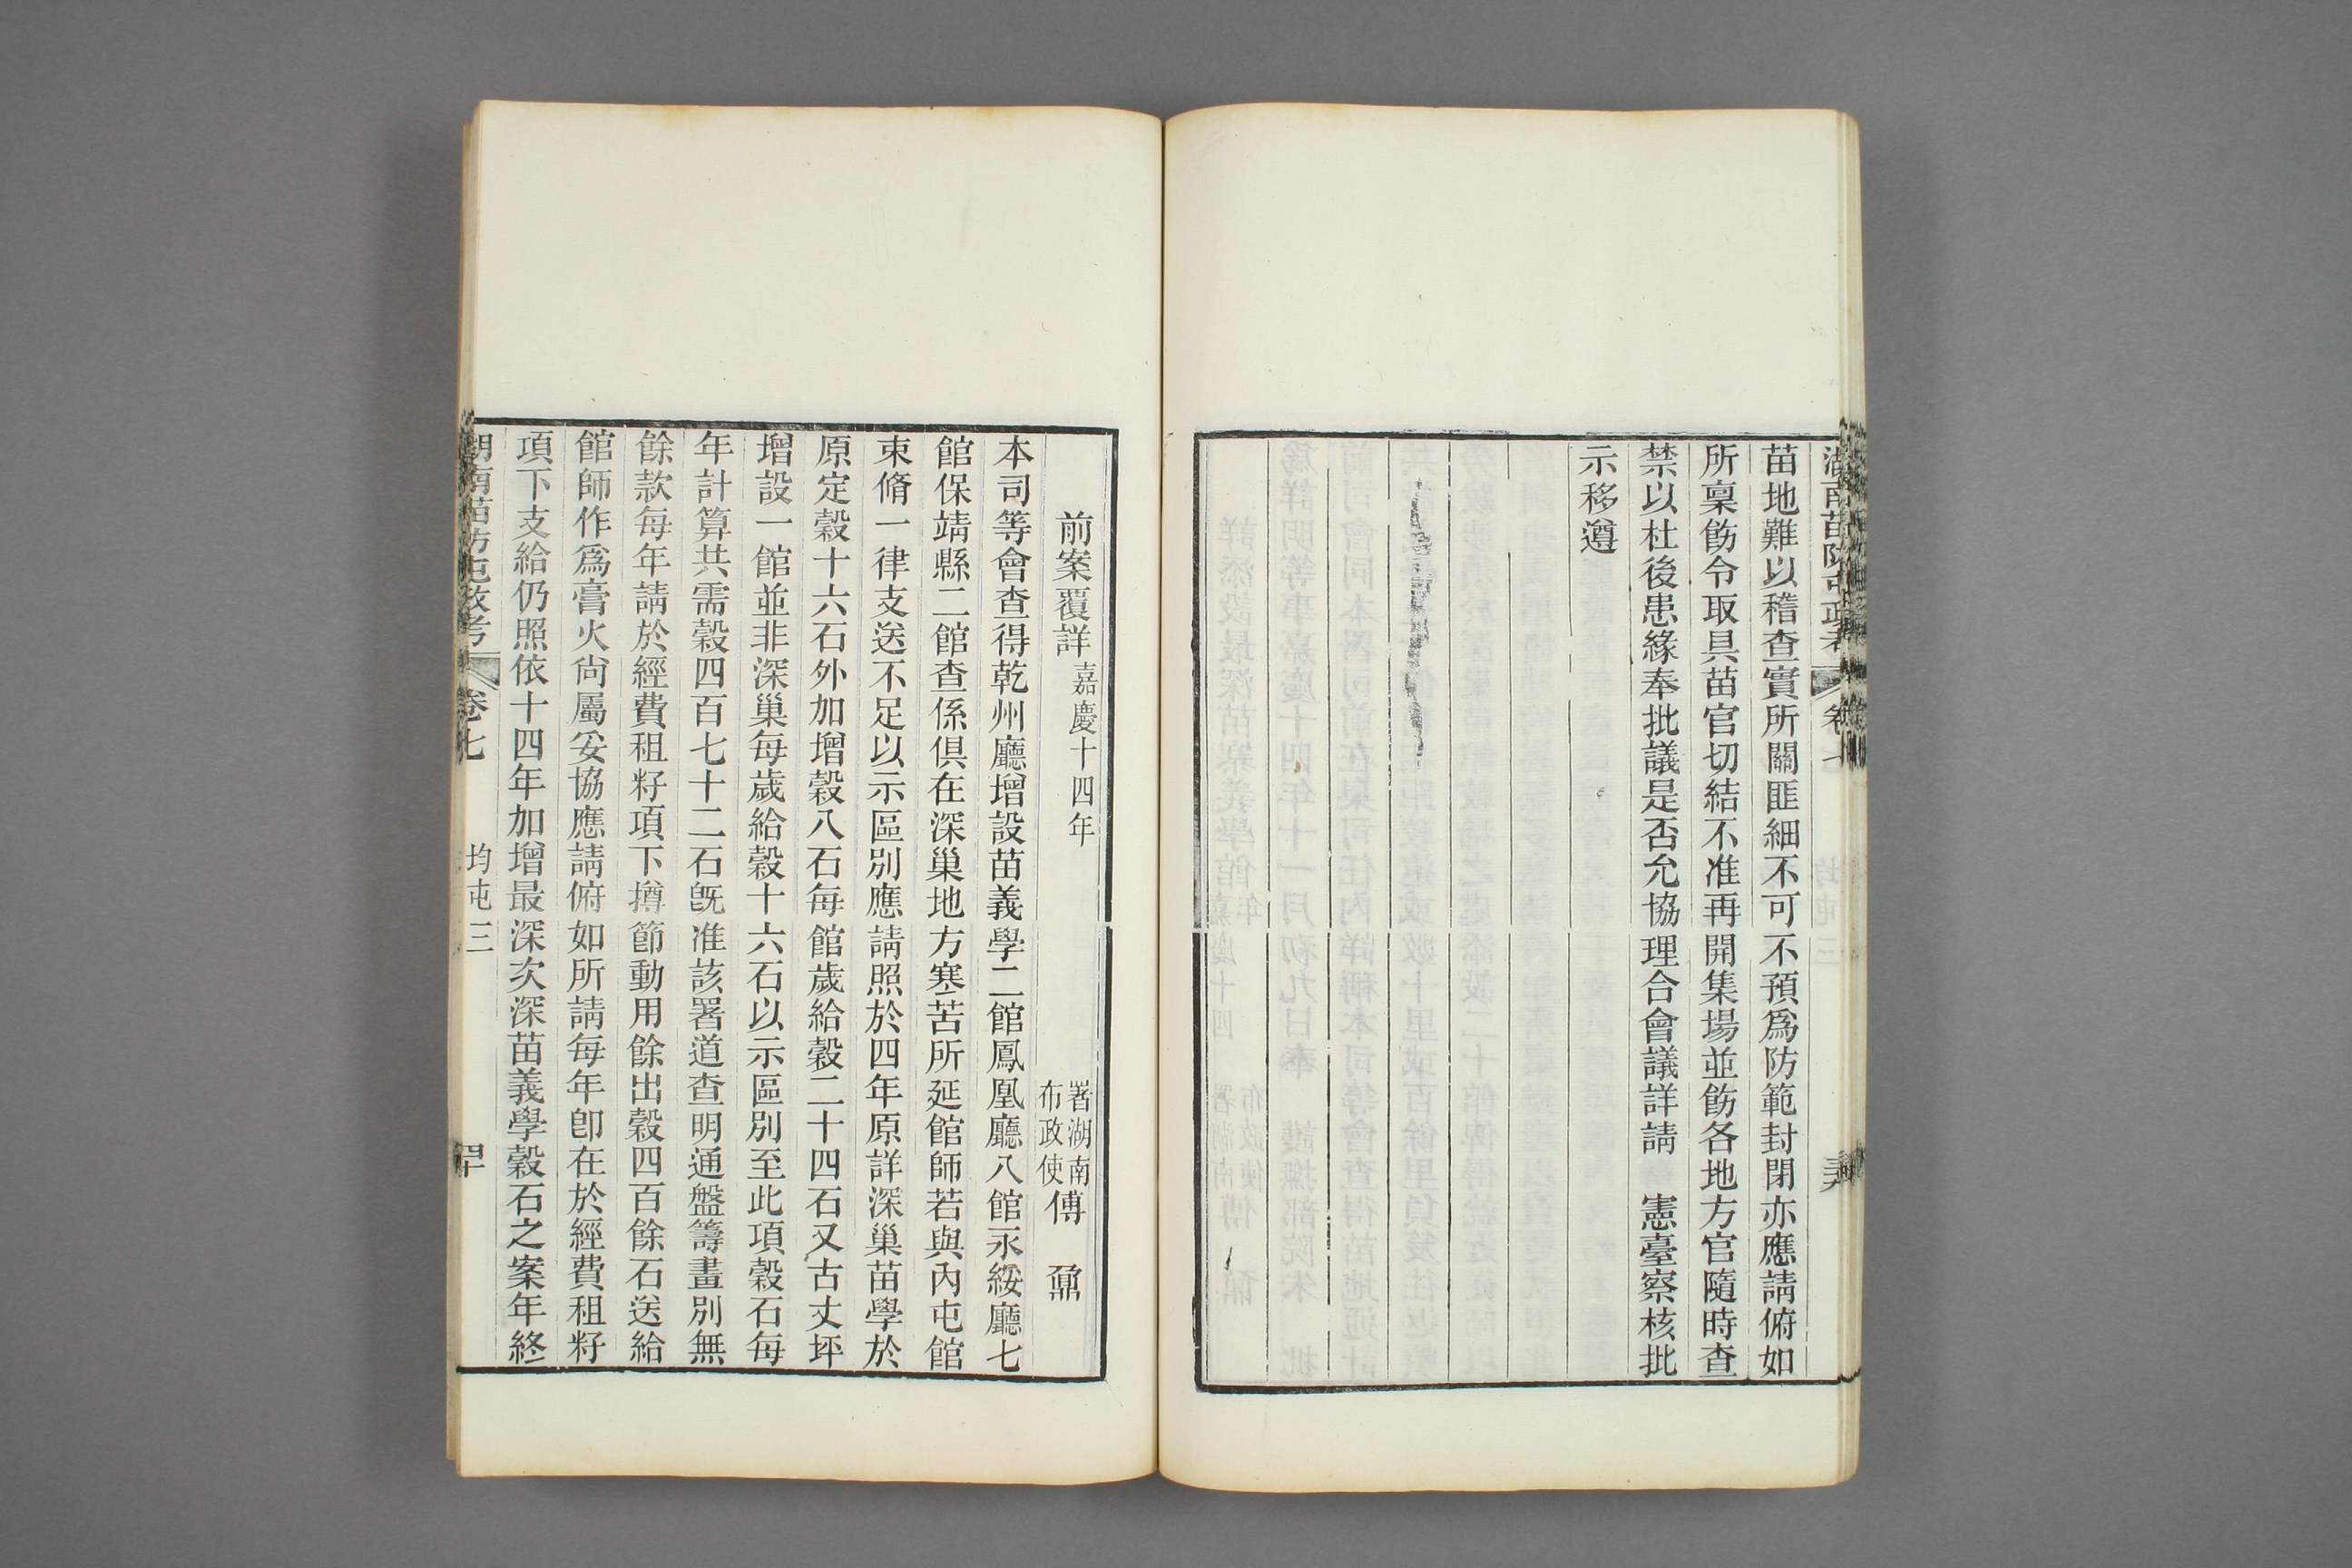 湖南苗防屯政考 卷七 均屯三
苗地難以稽查實所關匪細不可不預爲防範封閉亦應請俯如
所稟飭令取具苗官切結不准再開集場並飭各地方官隨時查
禁以杜後患緣奉批議是否允協理合會議詳請 憲臺察核批
示移遵
前案覆詳 嘉慶十四年 署湖南布政使傅 鼐
本司等會查得乾州廳增設苗義學二館鳳凰廳八館永綏廳七
館保靖縣二館查係俱在深巢地方寒苦所延館師若與內屯館
束脩一律支送不足以示區別應請照於四年原詳深巢苗學於
原定穀十六石外加增穀八石每館歲給穀二十四石又古丈坪
增設一館並非深巢每歲給穀十六石以示區別至此項穀石每
年計算共需穀四百七十二石旣准該署道查明通盤籌畫別無
餘款每年請於經費租籽項下撙節動用餘出穀四百餘石送給
館師作爲膏火尙屬妥協應請俯如所請每年卽在於經費租籽
項下支給仍照依十四年加增最深次深苗義學穀石之案年終
湖南苗防屯政考 卷七 均屯三 四十